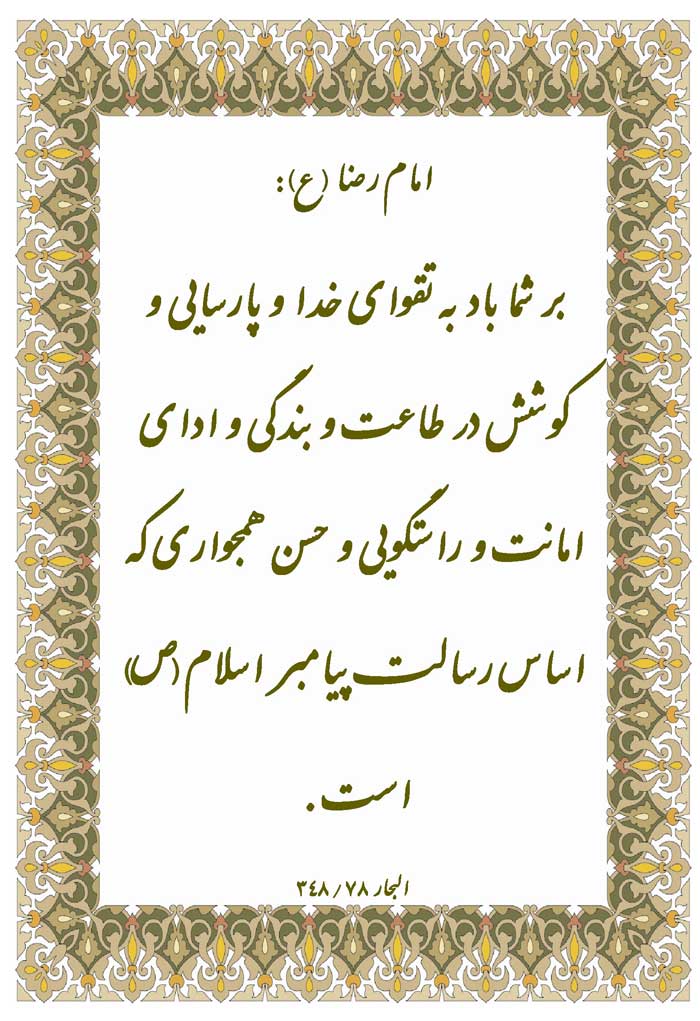 امام رضا (ع):
بر شما باد به تقوای خدا و پارسایی و
کوشش در طاعت و بندگی و ادای
امانت و راستگویی و حسن همجواری که
اساس رسالت پیامبر اسلام (ص)
است.
البحار ۷۸/۳٤۸